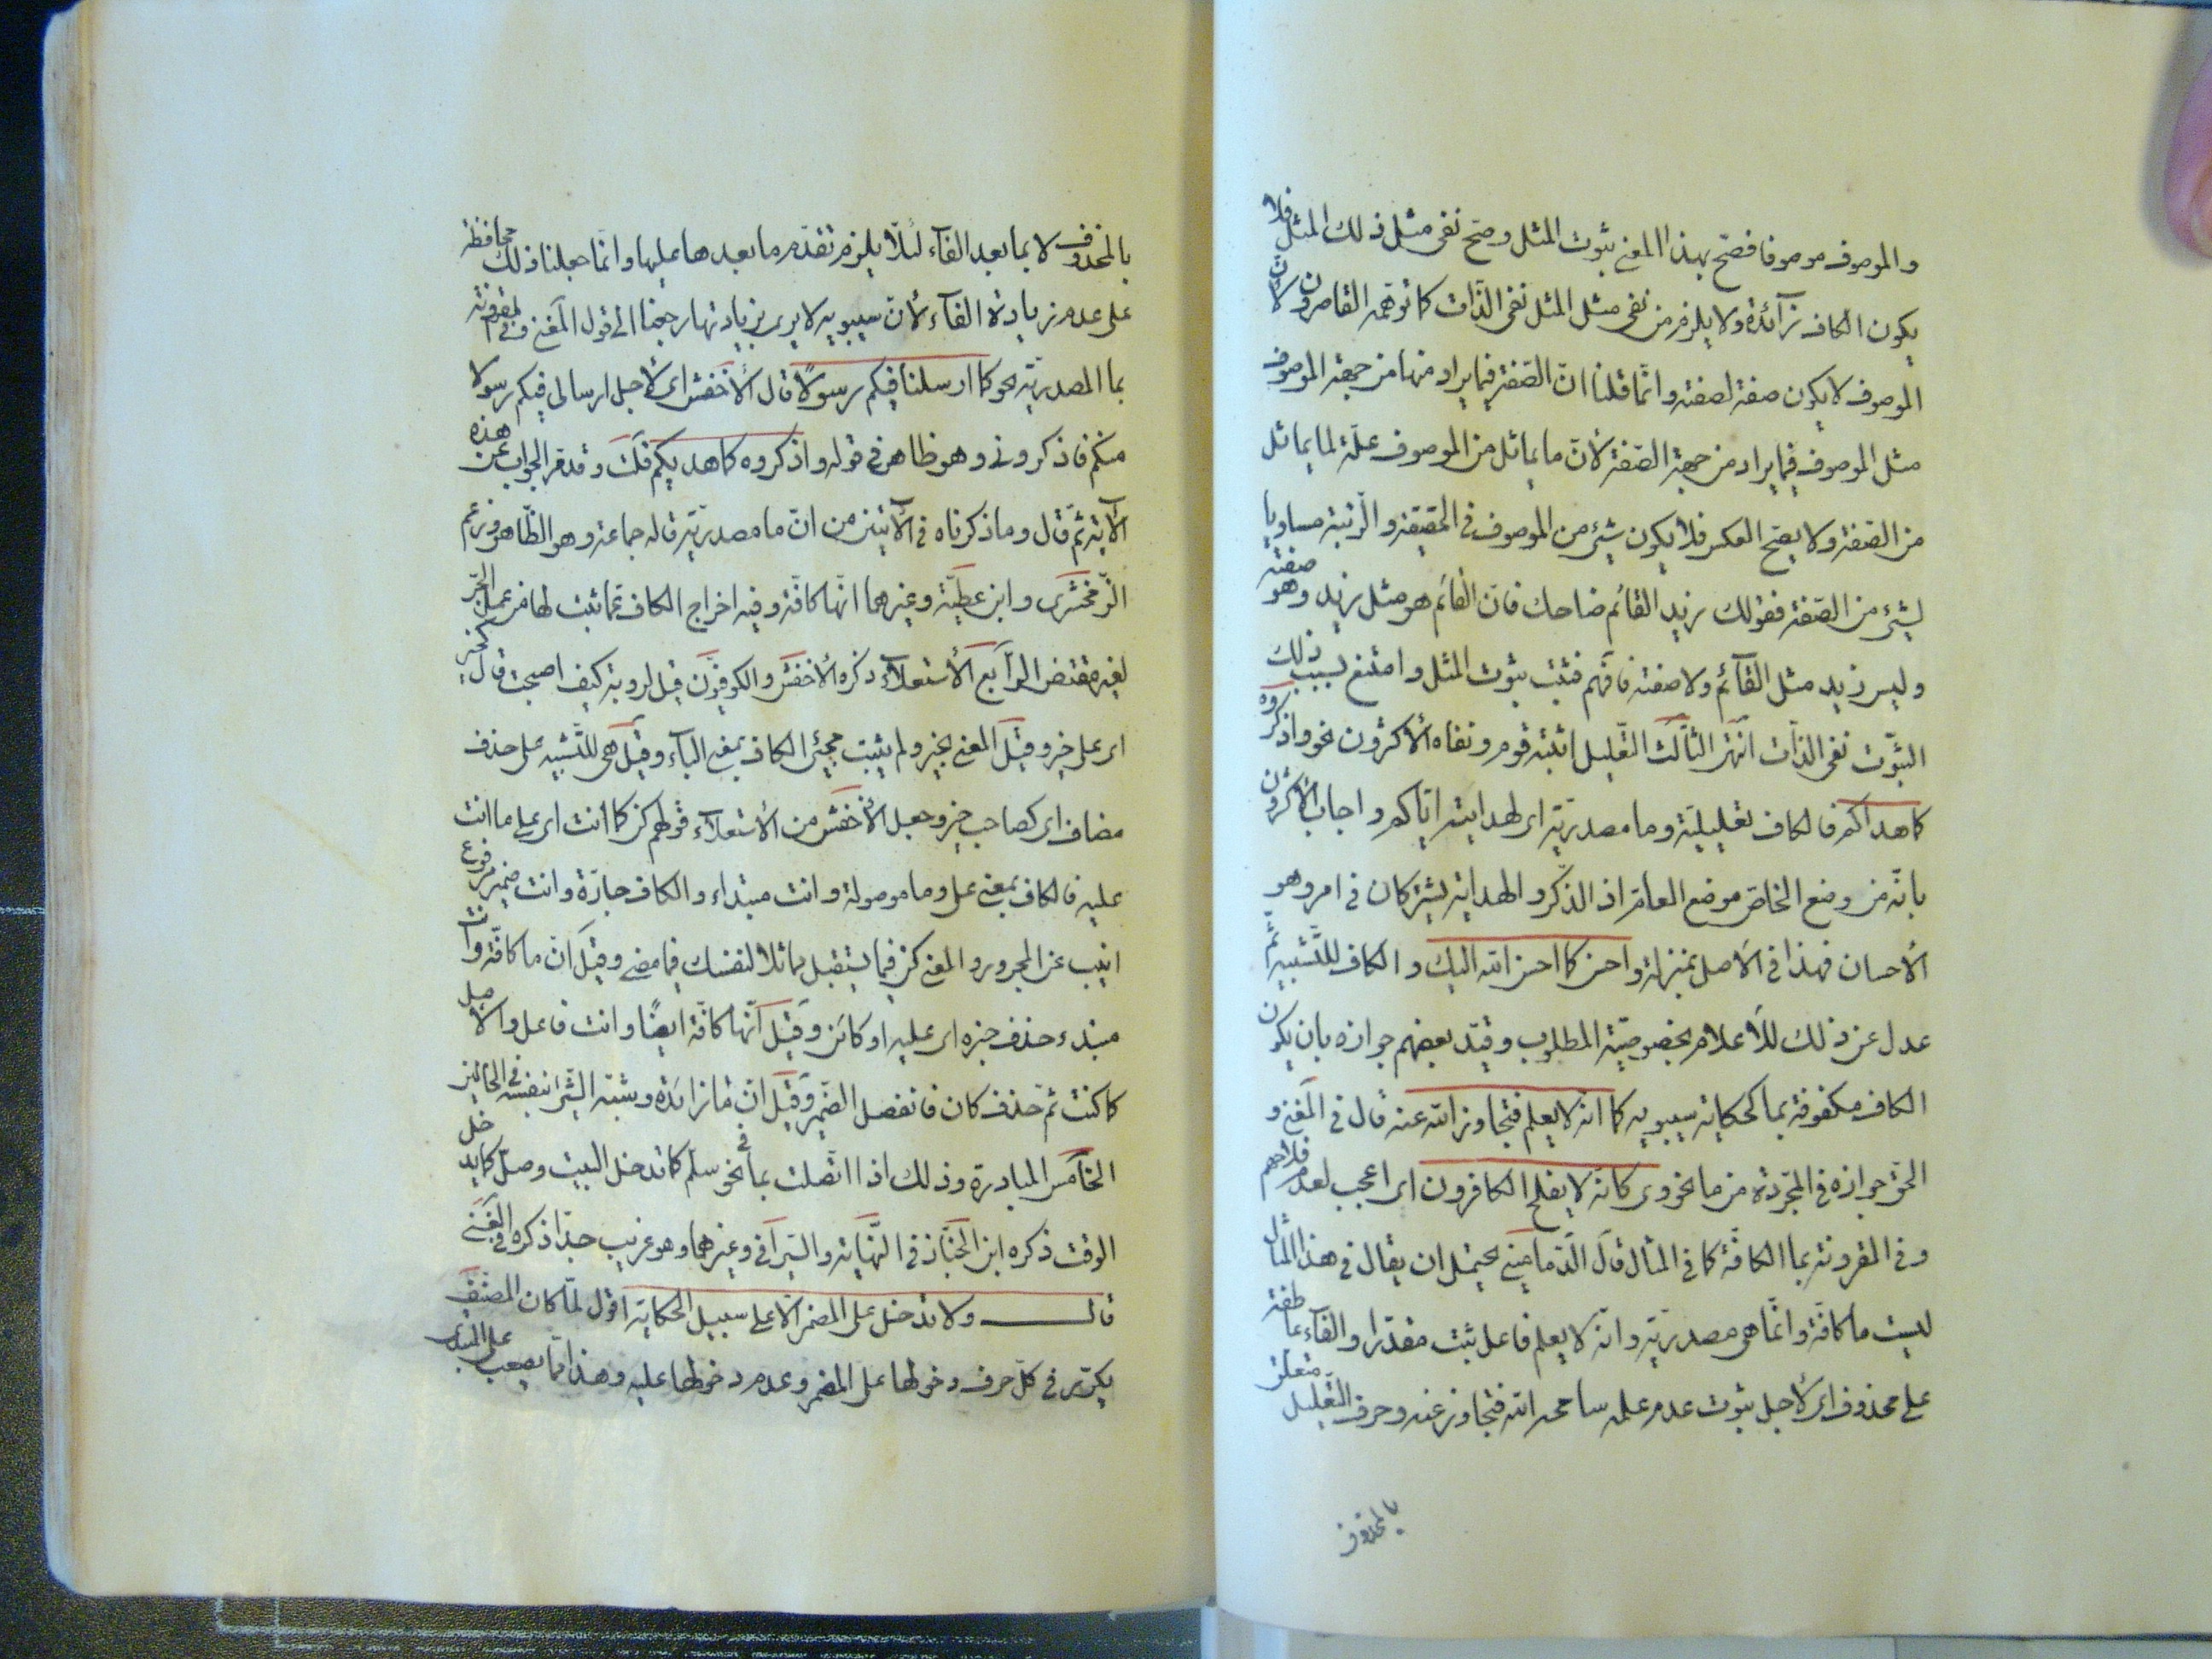 والموصوف موصوفا فصّح بهذا المعنى ثبوت المثل وصّح نفى مثل ذلك المثل فلا
يكون الكاف زآئدة ولا يلزم من نفى مثل المثل نفى الذّات كما توهّمه القاصرون لانّ
الموصوف لا يكون صفة لصفته وانّما قلنا انّ الصّفة فيما يراد منها من جهة الموصوف
مثل الموصوف فيما يراد من جهة الصّفة لانّ ما يماثل من الموصوف علّة لما يماثل
من الصّفة ولا يصّح العكس فلا يكون شيئ من الموصوف فى الحقيقة والرّتبة مساويا
لشيئ من الصّفة فقولك زيد القائم ضاحك فانّ القائم هو مثل زيد وهو صفته
وليس زيد مثل القآئم ولا صفته فافهم فثبت ثبوت المثل وامتنع بسبب ذلك
الثبوت نفى الذّات انتهى الثالث التّعليل اثبته قوم ونفاه الأكثرون نحو واذكروه
كما هداكم فالكاف تعليليّة وما مصدريّة اى لهدايته ايّاكم واجاب الأكثرون
بانّه من وضع الخاصّ موضع العامّ اذ الذّكر والهداية يشتركان فى امر وهو
الأحسان فهذا فى الأصل بمنزلة واحسن كما احسن الله اليك والكاف للتّشبيه ثمّ
عدل عن ذلك للأعلام بخصوصيّة المطلوب وقيّد بعضهم جوازه بان يكون
الكاف مكفوفة بما كحكاية سيبويه كما انه لا يعلم فتجاوز الله عنه قال فى المغنى و
الحقّ جوازه فى المجرّدة من ما نحو وى كانّه لا يفلح الكافرون اى اعجب لعدم فلاحهم
وفى المقرونة بما الكافّة كما فى المثال قال الدّمامينى يحتمل ان يقال فى هذا المثال
ليست ما كافّة وانّما هى مصدريّة وانّه لا يعلم فاعل بثبت مقدّرا والفآء عاطفة
على محذوف اى لأجل ثبوت عدم علمه سامحه الله فتجاوز عنه وحرف التّعليل متعلّق
بالمحذوف
بالمحذوف لا بما بعد الفآء لئلّا يلزم تقدّم ما بعدها عليها وانّما جعلنا ذلك محافظة
على عدم زيادة الفآء لأنّ سيبويه لا يرى بزيادتها رجعنا الى قول المغنى وفى المقرونة
بما المصدريّة نحو كما ارسلنا فيكم رسولًا قال الأخفش اى لأجل ارسالى فيكم رسولا
منكم فاذكرونى وهو ظاهر فى قوله واذكروه كما هديكم قلت وقد مرّ الجواب عن هذه
الآية ثمّ قال وما ذكرناه فى الآيتين من انّ ما مصدريّة قاله جماعة وهو الظّاهر وزعم
الزّمخشرى وابن عطيّة وغيرهما انّها كافّة وفيه اخراج الكاف عمّا ثبت لها من عمل الجرّ
لغير مقتض الرّابع الأستعلآء ذكره الأخفش والكوفيّون قيل لرؤبة كيف اصبحت قال كخير
اى على خير وقيل المعنى بخير ولم يثبت مجيئ الكاف بمعنى البآء وقيل هى للتّشبيه على حذف
مضاف اى كصاحب خير وجعل الأخفش من الأستعلآء قولهم كن كما انت اى على ما انت
عليه فالكاف بمعنى على وما موصولة وانت مبتداء والكاف جارّة وانت ضمير مرفوع
انيب عن المجرور والمعنى كن فيما يستقبل مماثلا لنفسك فيما مضى وقيل انّ ما كافّة وانت
مبتدء حذف خبره اى عليه او كائن وقيل انّها كافّة ايضًا وانت فاعل والاصل
كما كنت ثمّ حذف كان فانفصل الضّمير وقيل انّ ما زائدة وشبّه الشّئ بنفسه فى الحالين
الخامس المبادرة وذلك اذا اتّصلت بما فى نحو سلّم كما تدخل البيت وصلّ كما يدخل
الوقت ذكره ابن الخبّاز فى النّهاية والسّيرافى وغيرهما وهو غريب جدّا ذكره فى المغنى
قال ولا تدخل على المضمر الّا على سبيل الحكاية اقول لمّا كان المصنّف
يكرّر فى كلّ حرف دخولها على المضمر وعدم دخولها عليه وهذا ممّا يصعب على المبتدى